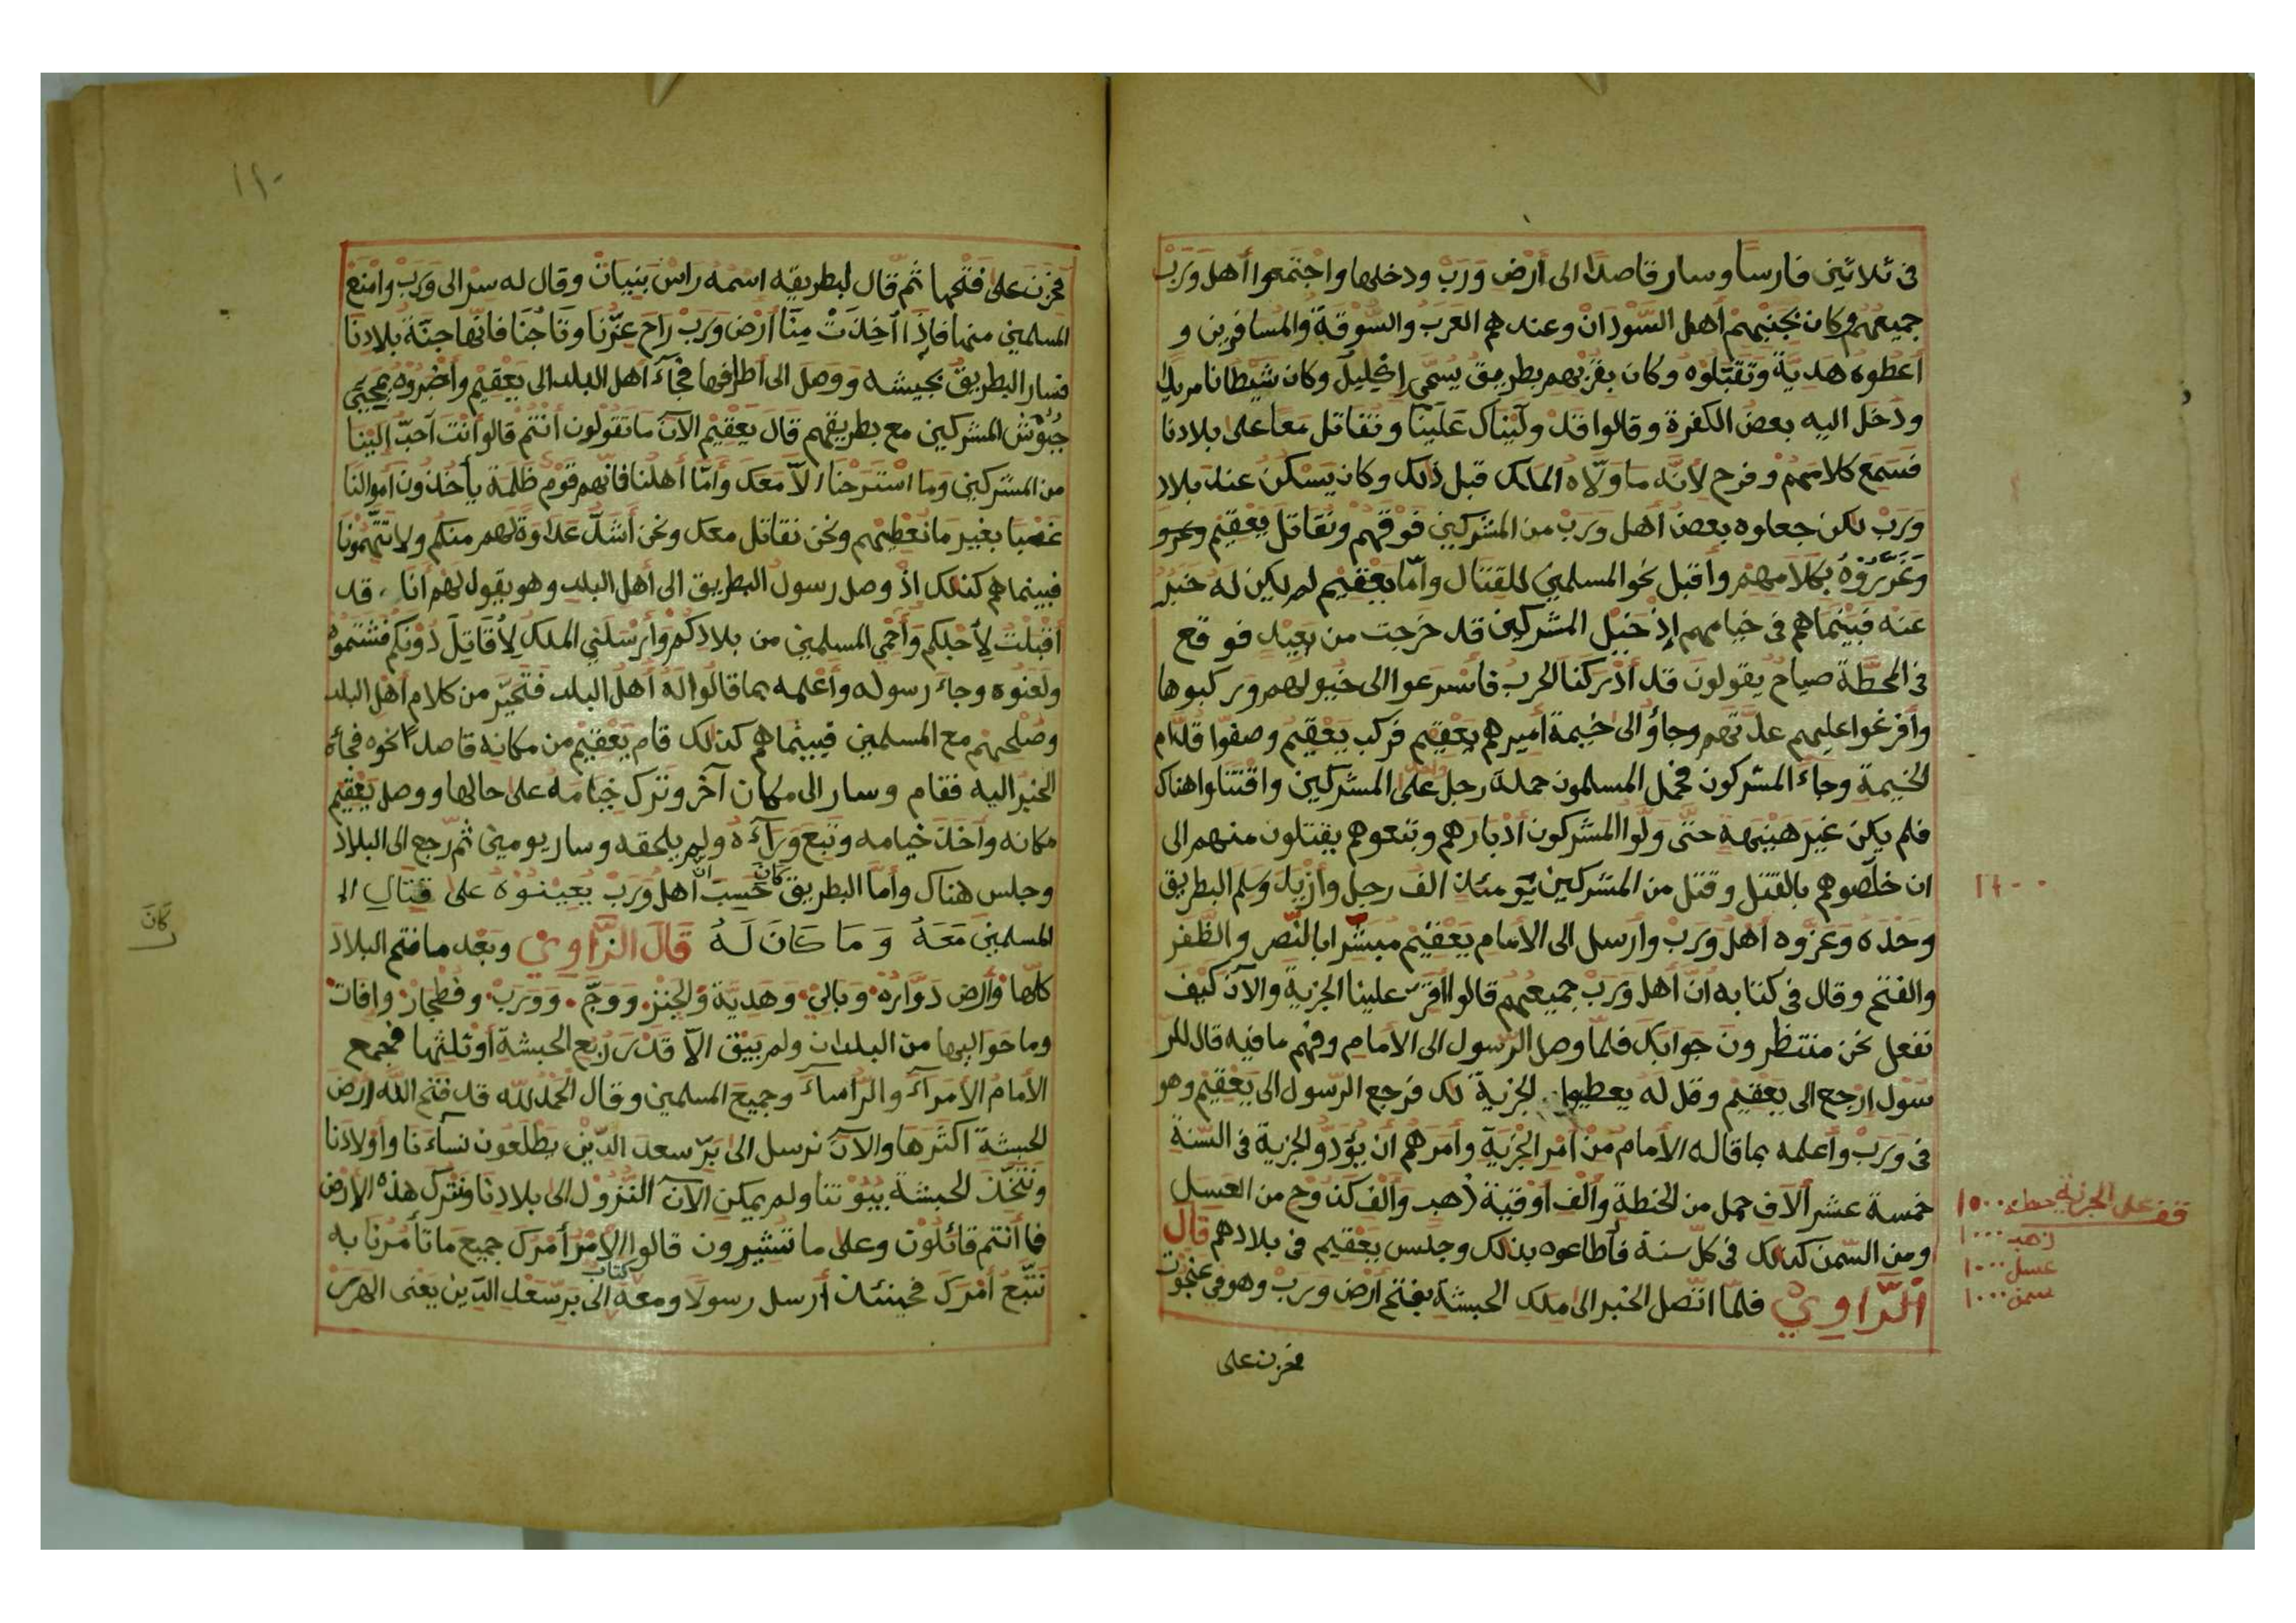 فى ثلاثين فارسا وسار قاصدًا الى أرض وَرَبْ ودخلها واجتمعوا أهل وَرَبْ
جميعهم وكان بجنبهم أهل السّودان وعندهم العرب والسّوقة والمسافرين و
أعطوه هديّة وتقبّلوه وكان بقربهم بطريق يسمّى إكليل وكان شيطانا مريدا
ودخل اليه بعض الكفرة وقالوا قد ولّيناك علينا ونقاتل معا على بلادنا
فسمع كلامهم وفرح لأنّه ما ولّاه الملك قبل ذلك وكان يسكن عند بلاد
وَرَبْ لكن جعلوه بعض أهل وَرَبْ من المشركين فوقهم ونقاتل يعقيم
وغرّروه بكلامهم وأقبل نحو المسلمين للقتال وأمّا يعقيم لم يكن له خبر
عنه فبينما هم فى خيامهم إذ خيل المشركين قد خرجت من بعيد فوقع
فى المحطّة صياح يقولون قد أدركنا الحرب فأسرعوا الى خيولهم وركبوها
وأفرغوا عليهم عدّتهم وجاؤ الى خيمة أميرهم يعقيم فركب يعقيم وصفّوا قدّام
الخيمة وجاء المشركون فحمل المسلمون حملة رجل واحد على المشركين واقتتلوا هناك
فلم يكن غير هنيهة حتّى ولّوا المشركون أدبارهم وتبعوهم يقتلون منهم الى
ان خلّصوهم بالقتل وقتل من المشركين يومئذ الف رجل وأزيد وسلم البطريق
١٢٠٠
وحده وعزوه أهل وَرَبْ وأرسل الى الأمام يعقيم مبشّرا بالنّصر والظّفر
والفتح وقال فى كتابه أنّ أهل وَرَبْ جميعهم قالوا أقرّ علينا الجزية والآن كيف
نفعل نحن منتظرون جوابك فلمّا وصل الرّسول الى الأمام وفهم ما فيه قال للر
سول ارجع الى يعقيم وقل له يعطيها الجزية لك فرجع الرّسول الى يعقيم وهو
فى وَرَبْ وأعلمه بما قاله الأمام من أمر الجزية وأمرهم أن يؤدّو الجزية فى السّنة
خمسة عشر آلاف حمل من الحنطة وألف أوقية ذهب وألف كندوح من العسل
ومن السّمن كذلك فى كلّ سنة فأطاعوه بذلك وجلس يعقيم فى بلادهم قال
الرّاوي فلمّا اتّصل الخبر الى ملك الحبشة بفتح أرض وَرَبْ وهو في عنجوت
قف على الجزية حنطه ١٥٠٠٠
ذهب ١٠٠٠
عسل ١٠٠٠
سمن ١٠٠٠
فحزن على
١١٠
فحزن على فتحها ثمّ قال لبطريقه اسمه راس بنيات وقال له سر الى وَرَبْ وامنع
المسلمين منها فاذا أخذت منّا أرض وَرَبْ راح عزّنا وتاجنا فانّها جنّة بلادنا
فسار البطريق بجيشه ووصل الى أطرافها فجاء أهل البلد الى يعقيم وأخبروه بمجيئ
جيوش المشركين مع بطريقهم قال يعقيم الآن ما تقولون أنتم قالوا أنت أحبّ الينا
من المشركين وما استرحنا الّا معك وأمّا أهلنا فانّهم قوم ظلمة يأخذون أموالنا
غصبا بغير ما نعطيهم ونحن نقاتل معك ونحن أشدّ عداوة لهم منكم ولا تتّهمونا
فبينما هم كذلك اذ وصل رسول البطريق الى أهل البلد وهو يقول لهم أنا قد
أقبلت لأجلكم وأحمي المسلمين من بلادكم وأرسلني الملك لأقاتل دونكم فشتموه
ولعنوه وجاء رسوله وأعلمه بما قالوا له أهل البلد فتحيّر من كلام أهل البلد
وصلحهم مع المسلمين فبينما هم كذلك قام يعقيم من مكانه قاصدا نحوه فجاء
الخبر اليه فقام وسار الى مكان آخر وترك خيامه على حالها ووصل يعقيم
مكانه وأخذ خيامه وتبع ورآءه ولم يلحقه وسار يومين ثمّ رجع الى البلاد
وجلس هناك وأمّا البطريق كان حسب أن أهل وَرَبْ يعينوه على قتال ال
كان
المسلمين معه وما كان له قال الرّاوي وبعد ما فتح البلاد
كلّها وأرض دوّاره وبالي وهديّة والجنز ووجّ ووَرَبْ وفطجار وافات
وما حواليها من البلدان ولم يبق الّا قدر ربع الحبشة أو ثلثها فجمع
الأمام الأمرآء والرّأساء وجميع المسلمين وقال الحمد للّه قد فتح اللّه أرض
الحبشة اكثرها والآن نرسل الى برّ سعد الدّين يطلعون نساءنا وأولادنا
ونتّخذ الحبشة بيوتنا ولم يمكن الآن النزول الى بلادنا ونترك هذه الأرض
فما أنتم قائلون وعلى ما تشيرون قالوا الأمر أمرك جميع ما تأمرنا به
نتّبع أمرك فحينئذ أرسل رسولا ومعه كتاب الى برّ سعد الدّين يعنى الهرر